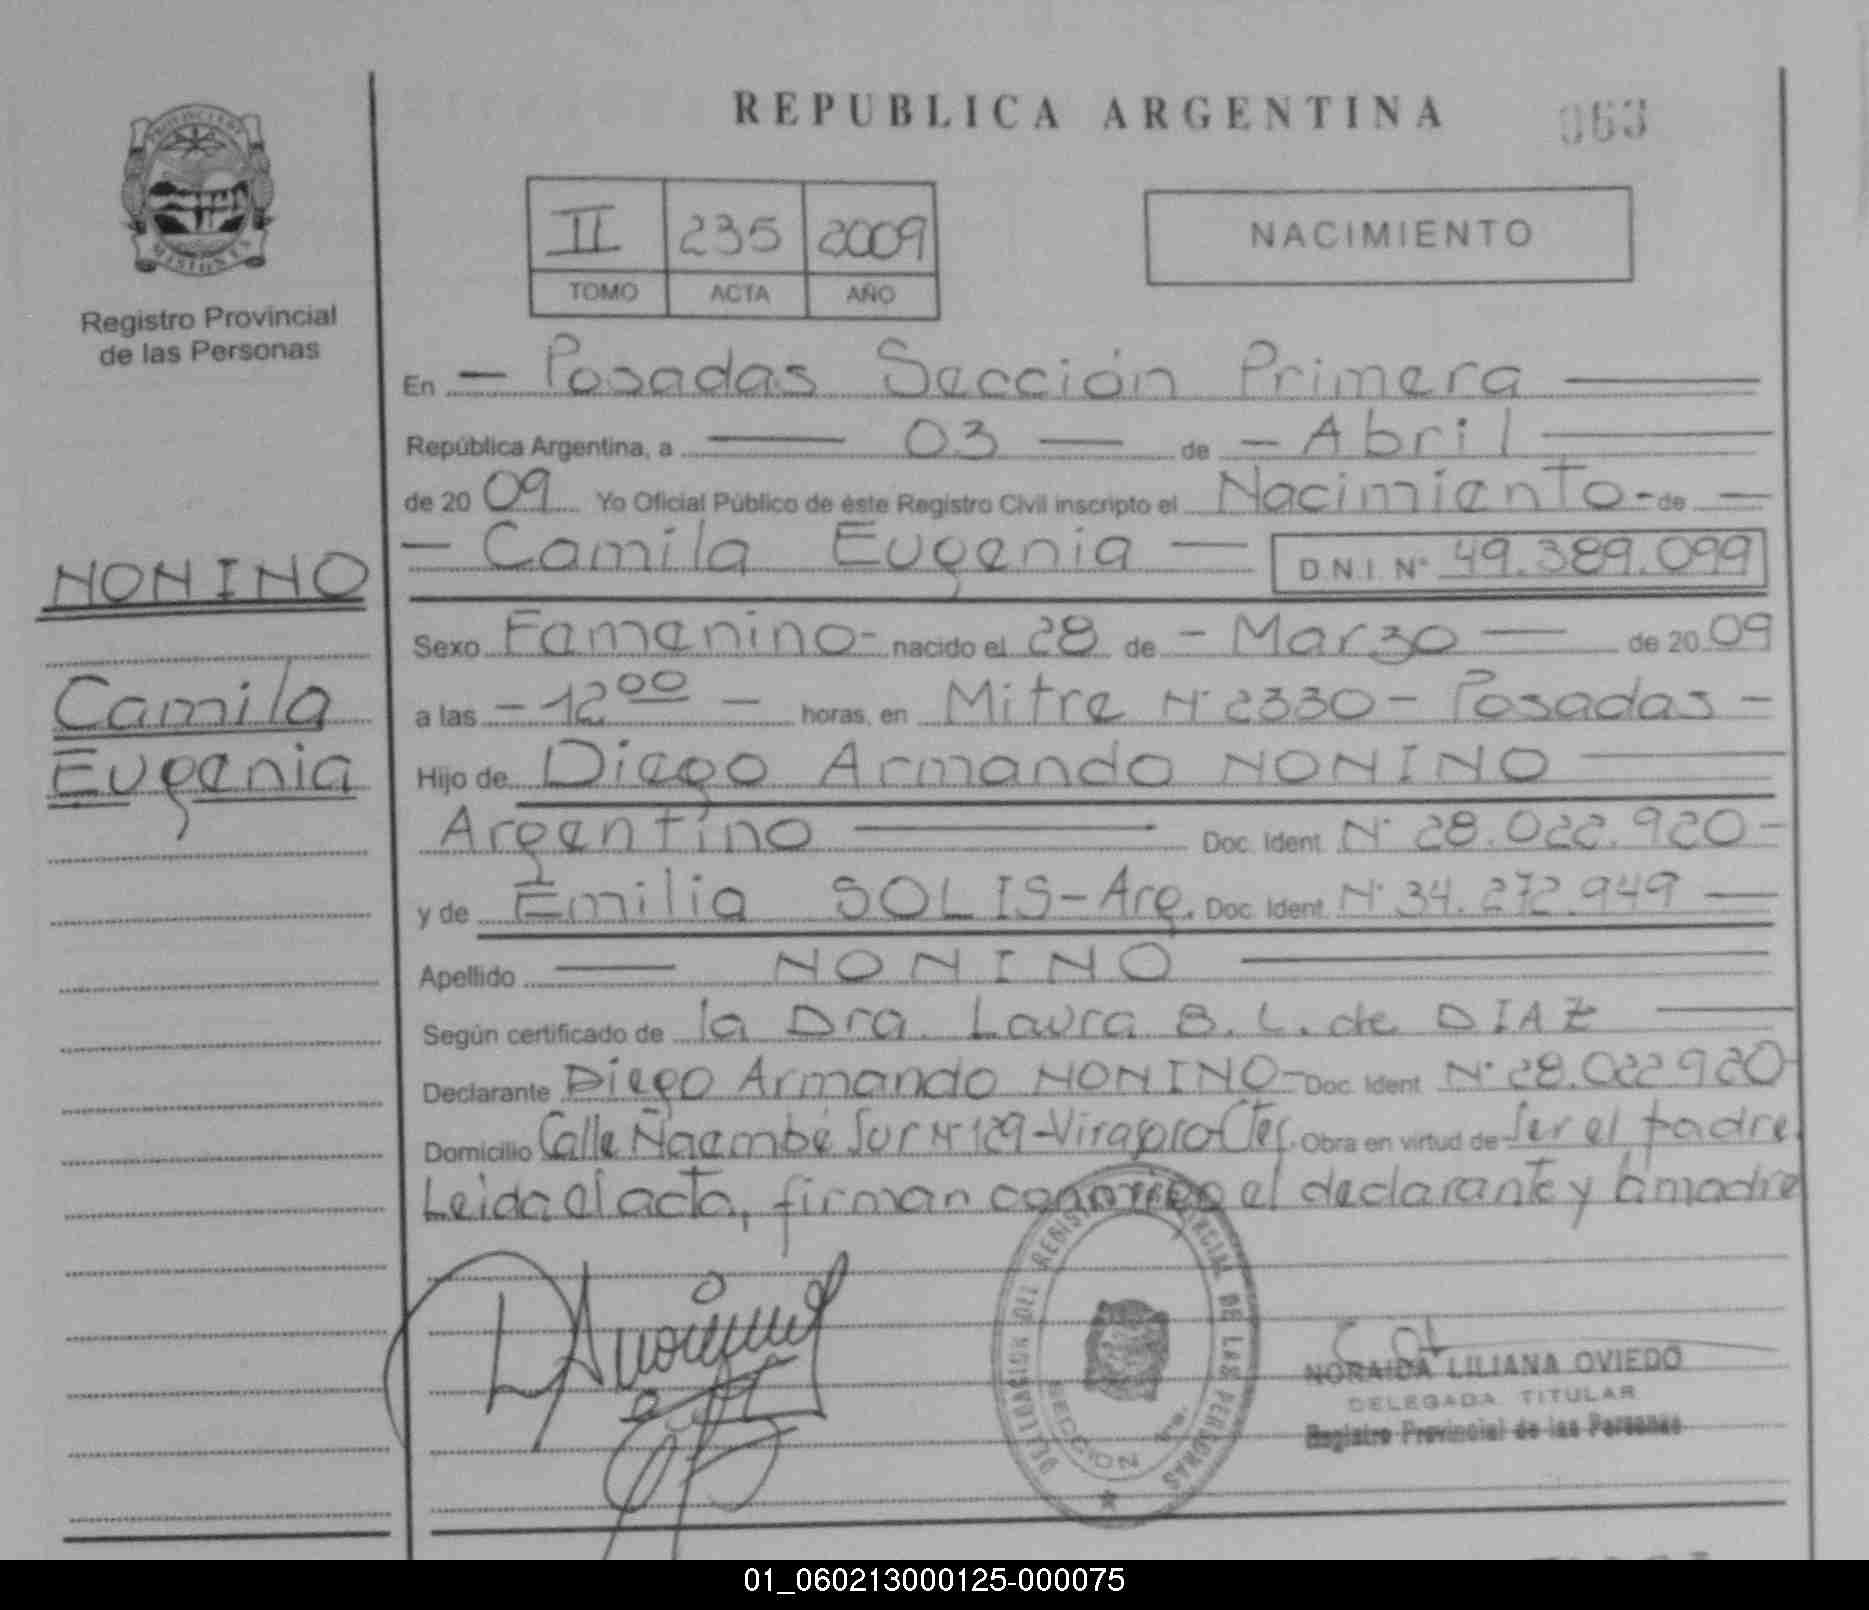 REPUBLICA ARGENTINA
063
PROVINCIA DE
MISIONES
Registro Provincial
de las Personas
II 235 2009
TOMO ACTA AÑO
NACIMIENTO
En — Posadas Sección Primera —
República Argentina, a — 03 — de — Abril —
de 20 09 Yo Oficial Público de éste Registro Civil inscripto el Nacimiento - de —
— Camila Eugenia — D.N.I. Nº 49.389.099
NONINO
Camila
Eugenia
Sexo Femenino - nacido el 28 de - Marzo — de 20 09
a las - 12 00 — horas, en Mitre Nº 2330 - Posadas -
Hijo de Diego Armando NONINO —
Argentino — Doc. Ident. Nº 28.022.920 -
y de Emilia SOLIS - Arg. Doc. Ident. Nº 34.272.949 —
Apellido — NONINO —
Según certificado de la Dra. Laura B. L. de DIAZ —
Declarante Diego Armando NONINO - Doc. Ident. Nº 28.022.920 -
Domicilio Calle Ñaembé Sur Nº 129 - Virasoro - Ctes. Obra en virtud de Ser el padre.
Leida el acta, firman conmigo el declarante y la madre
DELEGACION DEL REGISTRO PROVINCIAL DE LAS PERSONAS
SECCION 1ra.
NORAIDA LILIANA OVIEDO
DELEGADA TITULAR
Registro Provincial de las Personas
01_060213000125-000075